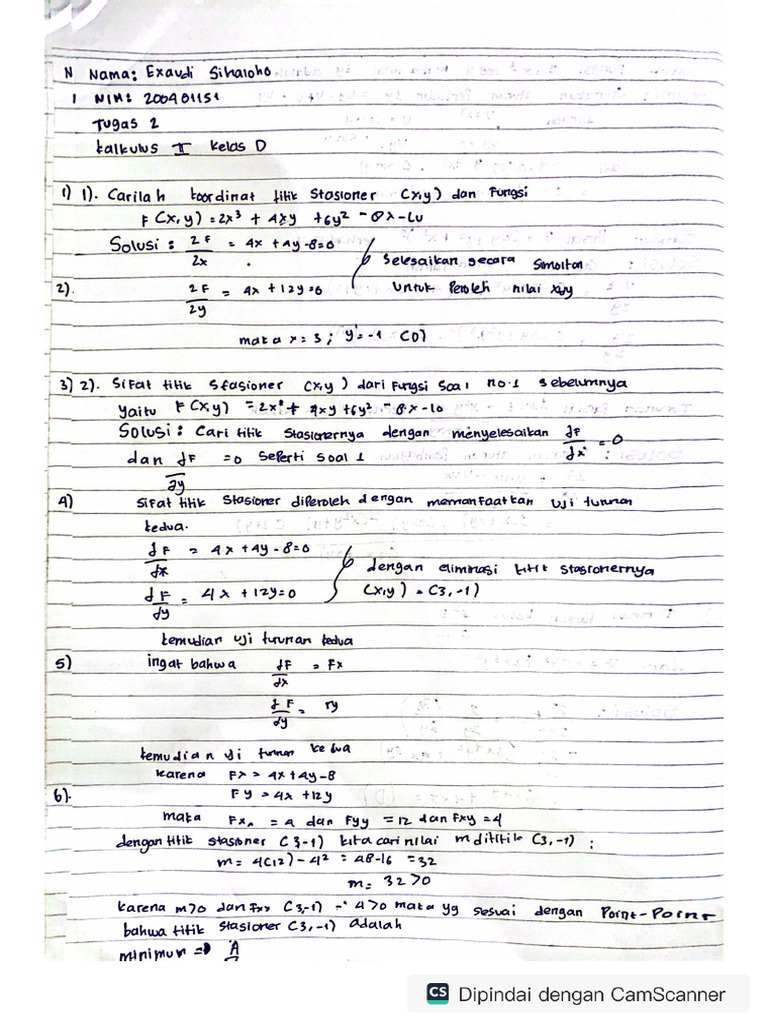 N Nama: Exaudi Sihaloho
1 NIM: 200401151
Tugas 2
Kalkulus II Kelas D
1) 1). Carilah koordinat titik Stasioner (x,y) dan Fungsi
F (x,y) = 2x³ + 4xy + 6y² - 8x - 10
Solusi : 2F/2x = 4x + 4y - 8 = 0
Selesaikan secara Simoltan
2). 2F/2y = 4x + 12y = 0
Untuk Peroleh nilai x,y
maka x = 3 ; y = -1 (D)
3) 2). Sifat titik Stasioner (x,y) dari Fungsi Soal no.1 sebelumnya
yaitu F(x,y) = 2x² + 4xy + 6y² - 8x - 10
Solusi : Cari titik Stasionernya dengan menyelesaikan dF/dx = 0
dan dF/dy = 0 Seperti soal 1 :
4) Sifat titik Stasioner diperoleh dengan memanfaatkan Uji turunan
kedua.
dF/dx = 4x + 4y - 8 = 0
dengan eliminasi titik stasionernya
dF/dy = 4x + 12y = 0
(x,y) = (3,-1)
kemudian uji turunan kedua
5) ingat bahwa dF/dx = Fx
dF/dy = Fy
kemudian uji turunan kedua
karena Fx = 4x + 4y - 8
6). Fy = 4x + 12y
maka Fxx = 4 dan Fyy = 12 dan Fxy = 4
dengan titik stasioner (3-1) kita cari nilai m dititik (3,-1) ;
m = 4(12) - 4² = 48 - 16 = 32
m = 32 > 0
karena m>0 dan Fxx (3,-1) = 4>0 maka yg sesuai dengan Point-Point
bahwa titik stasioner (3,-1) adalah
minimum => A
CS Dipindai dengan CamScanner